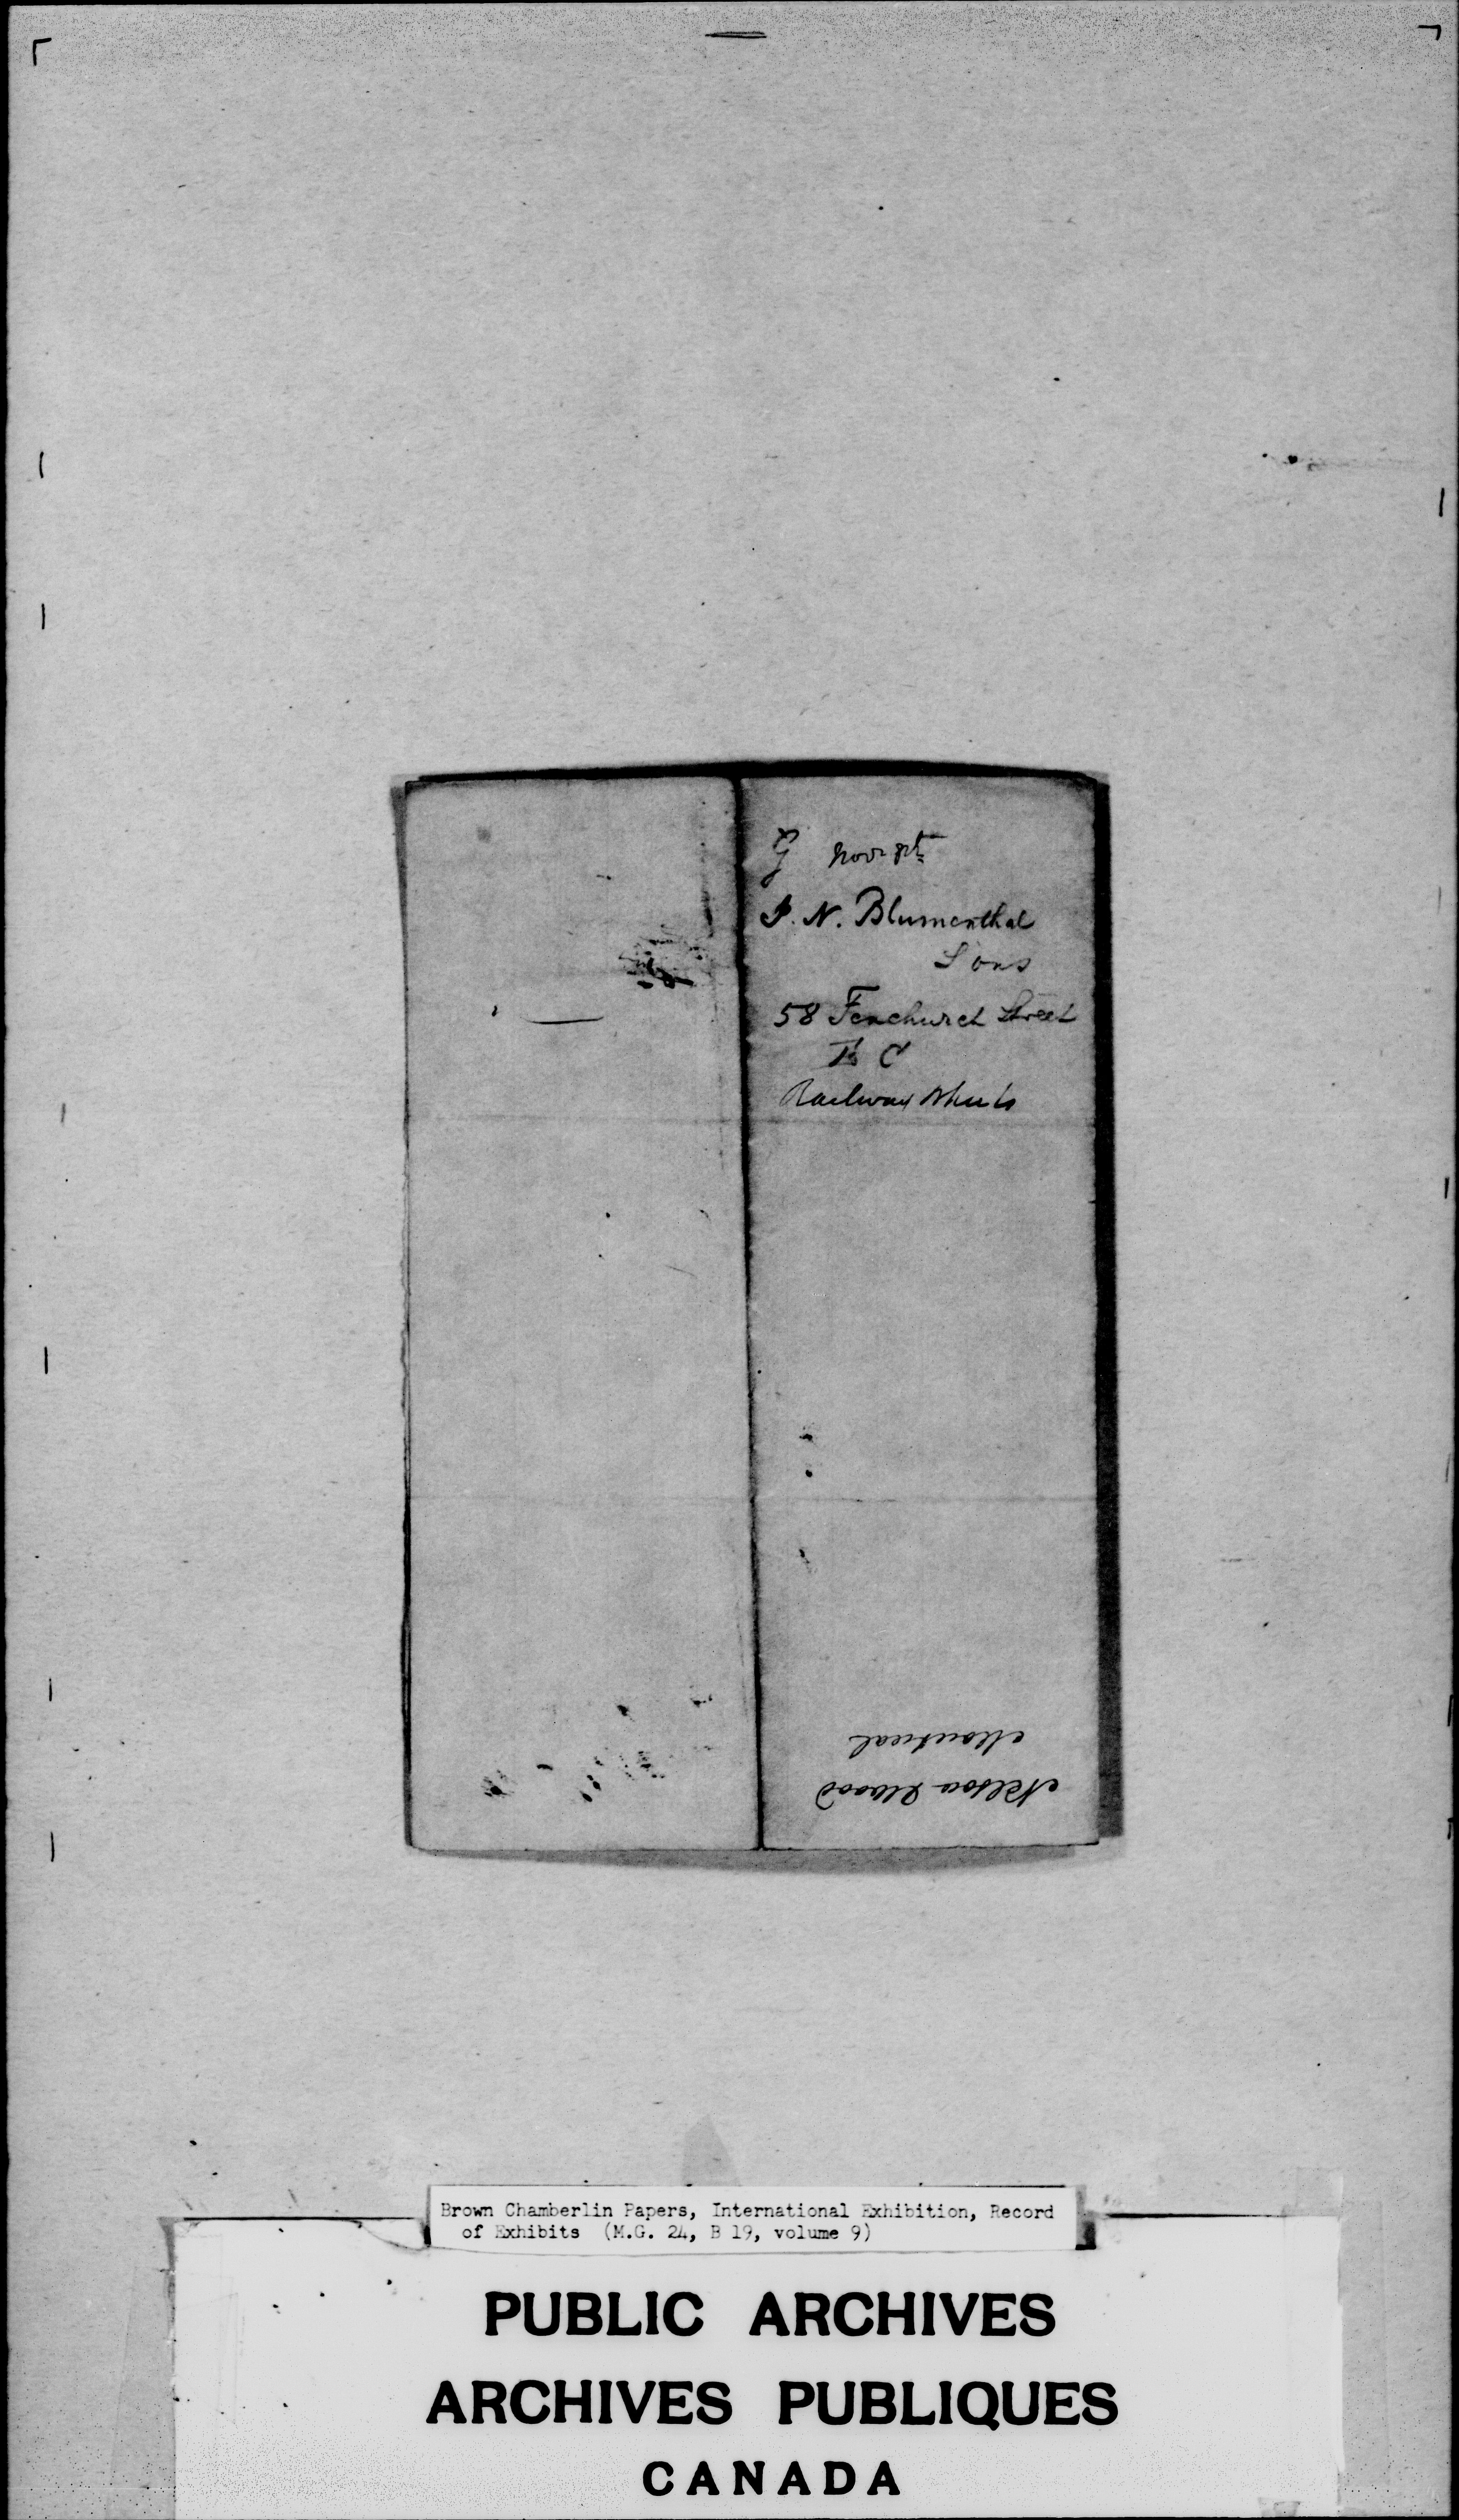 G Novr 8th
J. N. Blumenthal
Sons
58 Fenchurch Street
E C
Railway Wheels
Montreal
Nelson & Wood
Brown Chamberlin Papers, International Exhibition, Record
of Exhibits (M.G. 24, B 19, volume 9)
PUBLIC ARCHIVES
ARCHIVES PUBLIQUES
CANADA